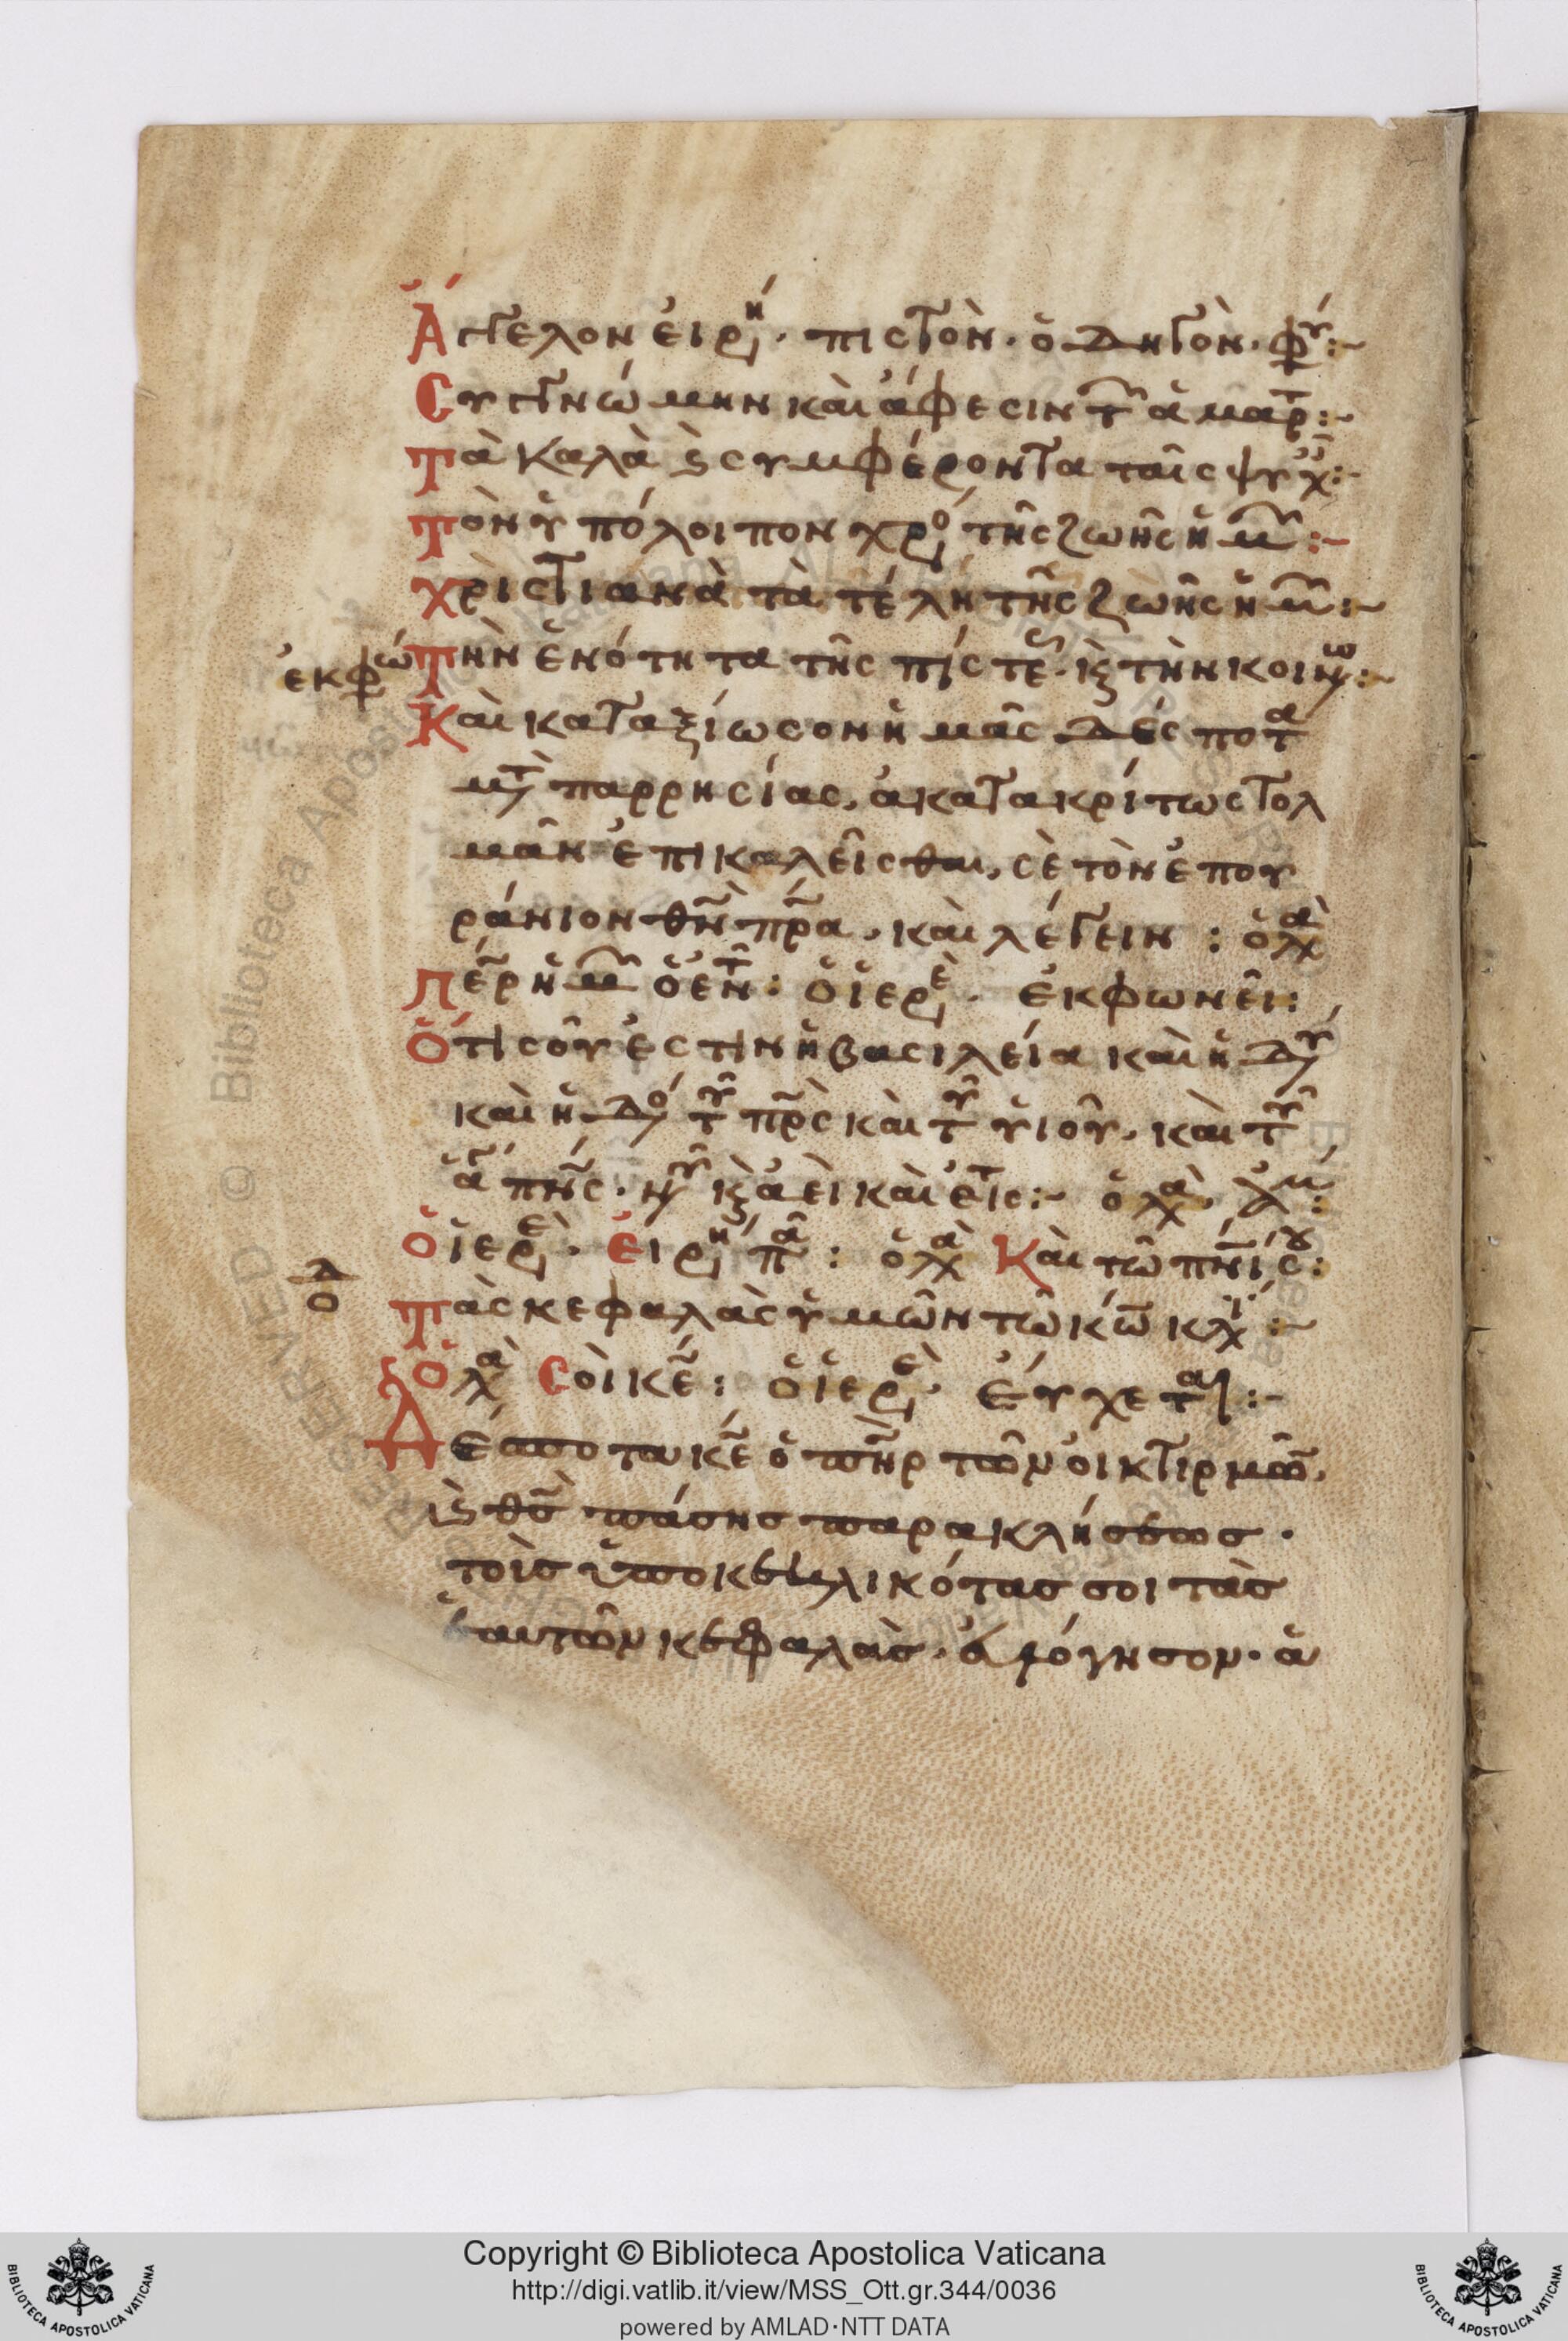 Ἄγγελον εἰρή· πιστὸν· ὁδηγὸν· φύ:~
Συγγνώμην καὶ ἄφεσιν τ ἁμαρτ:~
Τὰ καλὰ ϗ συμφέροντα ταῖς ψυχ:~
Τὸν ὑπόλοιπον χρό τῆς ζωῆς ἡμ:~
Χρἰστιανὰ τὰ τέλη τῆς ζωῆς ἡμ:~
ἐκφώ Τὴν ἑνότητα τῆς πίστε· ϗ τὴν κοινω:~
Καὶ καταξίωσον ἡμᾶς δέσποτα
μτ παρρησίας, ἀκατακρίτως τολ
μᾶν ἐπικαλεῖσθαι, σὲ τὸν ἐπου
ράνιον θν πρα, καὶ λέγειν : ὁ λα
Περ ἡμ ὁ ἐν τ: ὁ ἱερε· ἐκφωνεῖ:
Ὅτι σοῦ ἐστιν ἡ βασιλεία καὶ ἡ δύ
καὶ ἡ δό τοῦ πρς καὶ τοῦ υἱοῦ, καὶ τοῦ
ἁγ πνς· νῦ ϗ ἀεὶ καὶ εἰς:~ ὁ λα, ἀμή:
ὁ ἱερε· Εἰρή πᾶ : ὁ λα Καὶ τῶ πνί σου:
δο Τὰς κεφαλὰς ὑμῶν τῶ κω κλί:~
ὁ λα Σοὶ κε: ὁ ἱερε· Εὔχεται:~
Δέσποτα κε ὁ πηρ τῶν οἰκτιρμῶ,
ϗ θς πάσης παρακλήσεως·
τοὺς ὑποκεκλικότας σοι τὰς
ἑαυτῶν κεφαλὰς, εὐλόγησον· ἁ
Copyright © Biblioteca Apostolica Vaticana
http://digi.vatlib.it/view/MSS_Ott.gr.344/0036
powered by AMLAD·NTT DATA